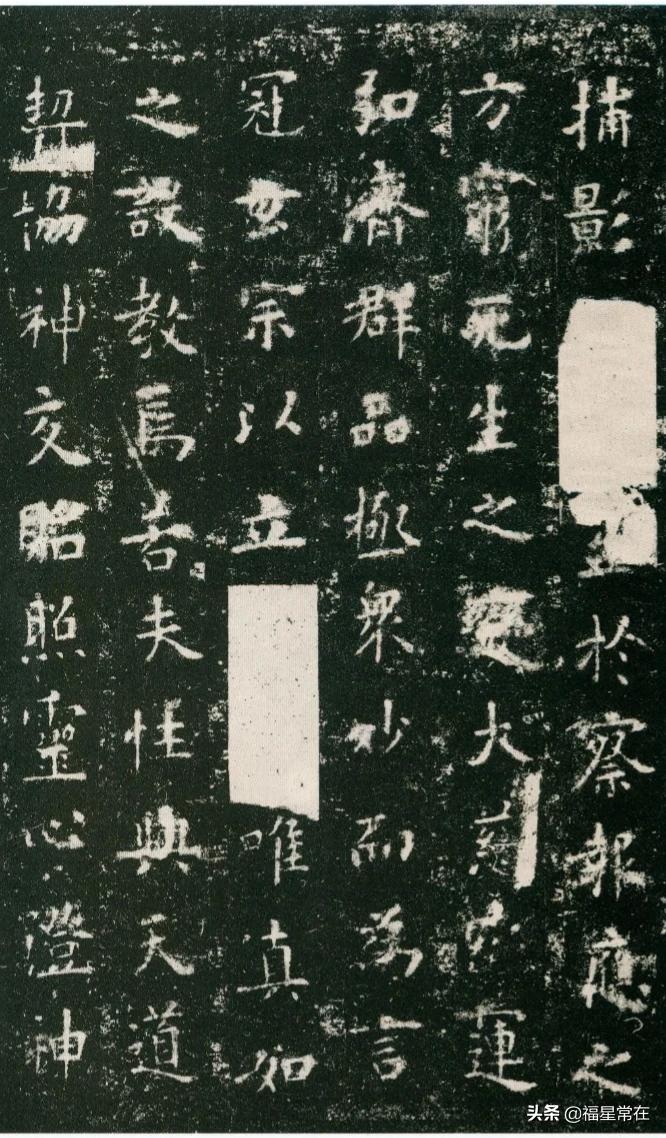 捕影於察報應之
方窮死生之變大慈運
弘濟群品極衆妙而為言
冠玄宗以立唯真如
之設教焉若夫性與天道
契協神交昭照靈心澄神
头条 @福星常在